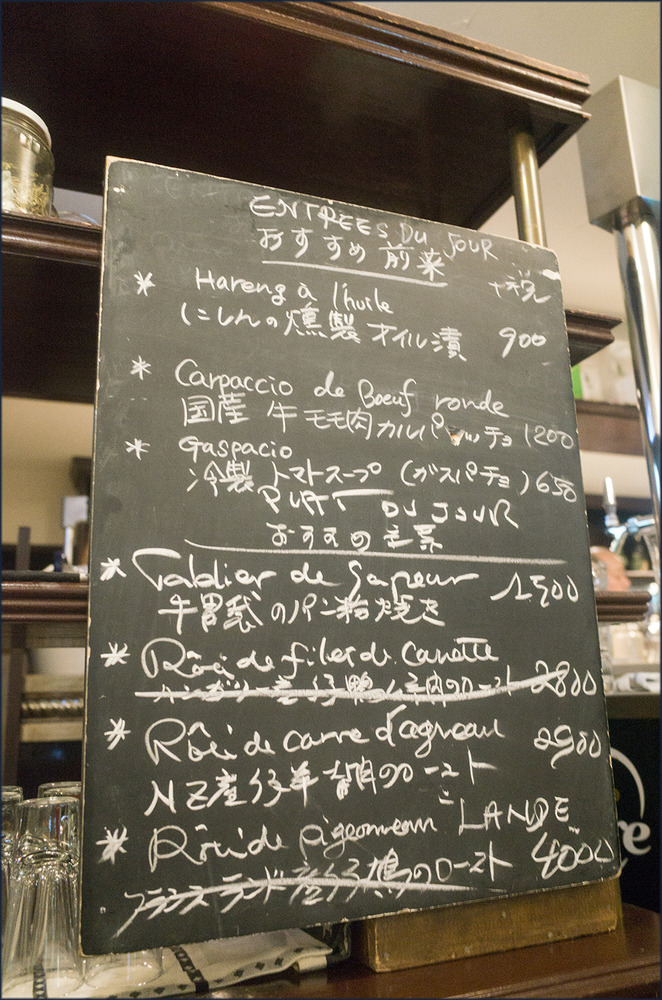 ENTREES DU JOUR
おすすめ前菜
+税
* Hareng à l'huile
にしんの燻製オイル漬 900
* Carpaccio de Boeuf ronde
国産牛モモ肉カルパッチョ 1200
* Gaspacio
冷製トマトスープ (ガスパチョ) 650
PLAT DU JOUR
おすすめ主菜
* Tablier de Sapeur 1500
牛胃袋のパン粉焼き
* Rôti de filet de canette
ハンガリー産仔鴨ムネ肉のロースト 2800
* Rôti de carre d'agneau 2900
NZ産仔羊背肉のロースト
* Rôti de pigeonneau "LANDE"
フランスランド産仔鳩のロースト 4000